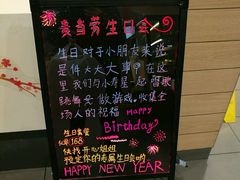 麦当劳生日会
生日对于小朋友来说
是件大大大事!在这
里我们与小寿星一起唱歌
跳舞 做游戏,收集全
场人的祝福 HAPPY
Birthday
生日套餐
168
快找开心姐姐
预定你的专属生日会哟
HAPPY NEW YEAR